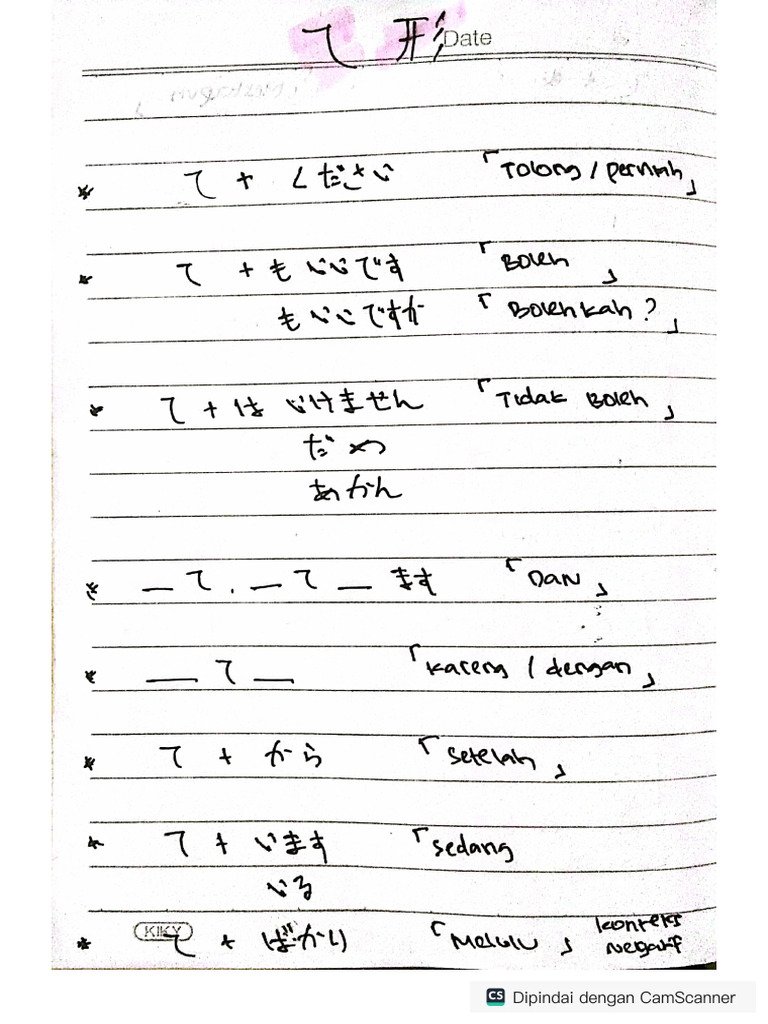 て形
Date
* て + ください 「Tolong / perintah」
* て + もいいです 「Boleh」
もいいですか 「Bolehkah?」
* て + は いけません 「Tidak Boleh」
だめ
あかん
* _て. _て _ ます 「DAN」
* _て_ 「karena / dengan」
* て + から 「setelah」
* て + います 「sedang
いる
KIKY
* て + ばかり 「Melulu」 konteks
negatif
CS Dipindai dengan CamScanner